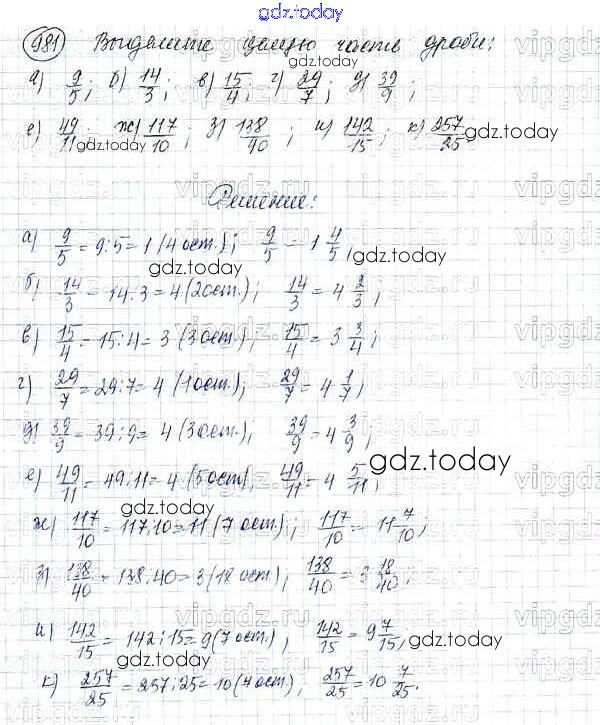 gdz.today
981 Выделите целую часть дроби:
а) 9/5; б) 14/3; в) 15/4; г) 29/7; д) 39/9;
е) 49/11; ж) 117/10; з) 138/40; и) 142/15; к) 257/25
gdz.today gdz.today
Решение:
а) 9/5 = 9:5 = 1 (4 ост.); 9/5 = 1 4/5;
gdz.today gdz.today
б) 14/3 = 14:3 = 4 (2 ост.); 14/3 = 4 2/3;
в) 15/4 = 15:4 = 3 (3 ост.); 15/4 = 3 3/4;
г) 29/7 = 29:7 = 4 (1 ост.); 29/7 = 4 1/7;
д) 39/9 = 39:9 = 4 (3 ост.); 39/9 = 4 3/9;
е) 49/11 = 49:11 = 4 (5 ост.); 49/11 = 4 5/11;
gdz.today gdz.today
ж) 117/10 = 117:10 = 11 (7 ост.); 117/10 = 11 7/10;
з) 138/40 = 138:40 = 3 (18 ост.); 138/40 = 3 18/40;
vipgdz.ru
и) 142/15 = 142:15 = 9 (7 ост.); 142/15 = 9 7/15;
gdz.today gdz.today
к) 257/25 = 257:25 = 10 (7 ост.); 257/25 = 10 7/25.